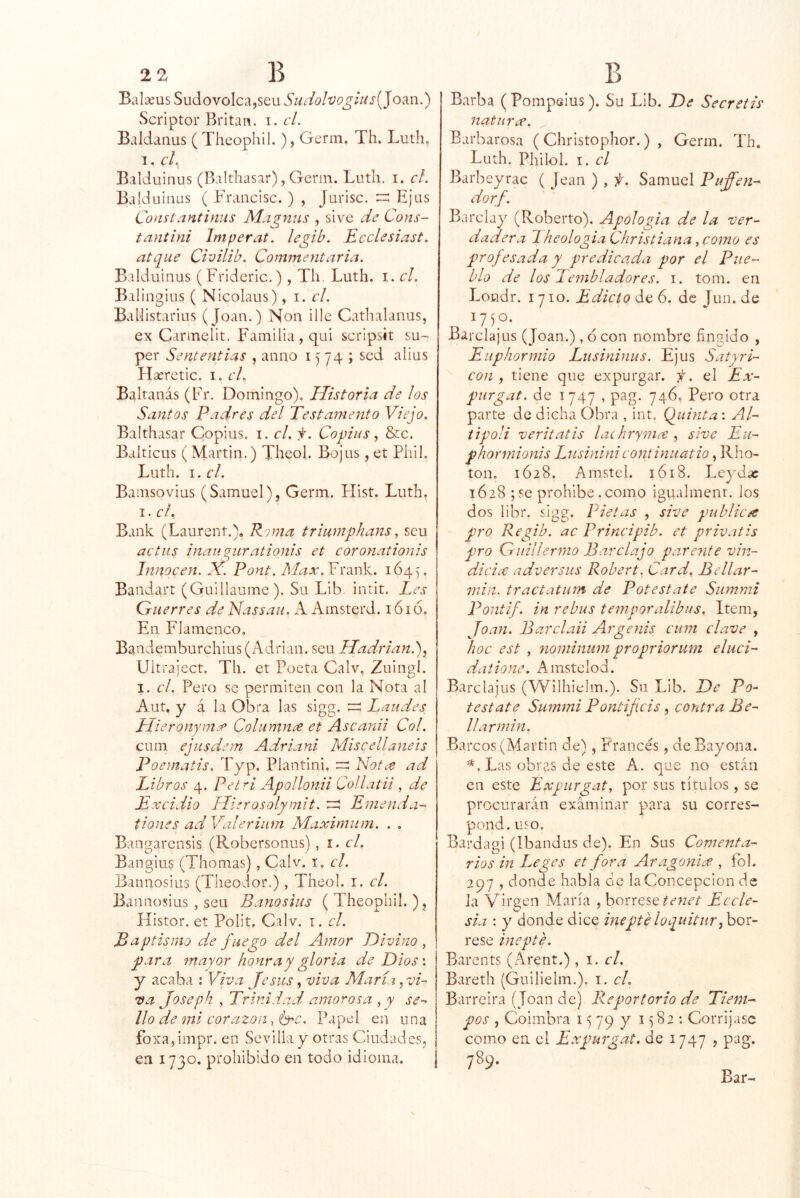 22 B
Balæus Sudovolca,seu Sudolvogius(Joan.)
Scriptor Britan. 1. cl.
Baldanus ( Theophil. ), Germ. Th. Luth.
1. cl.
Balduinus (Balthasar), Germ. Luth. 1. cl.
Balduinus ( Francisc. ) , Jurisc. = Ejus
Constantinus Magnus , sive de Cons-
tantini Imperat. legib. Ecclesiast.
atque Civilib. Commentaria.
Balduinus ( Frideric. ) , Th. Luth. 1. cl.
Balingius ( Nicolaus) , 1. cl.
Ballistarius ( Joan. ) Non ille Cathalanus,
ex Carmelit. Familia, qui scripsit su-
per Sententias , anno 1574 ; sed alius
Hæretic. 1. cl.
Baltanás (Fr. Domingo). Historia de los
Santos Padres del Testamento Viejo.
Balthasar Copius. 1. cl. ℣. Copius , &c.
Balticus ( Martin. ) Theol. Bojus , et Phil.
Luth. 1. cl.
Bamsovius (Samuel), Germ. Hist. Luth.
1. cl.
Bank (Laurent.). Roma triumphans, seu
actus inaugurationis et coronationis
Innocen. X. Pont. Max. Frank. 1645.
Bandart (Guillaume ). Su Lib. intit. Les
Guerres de Nassau. A Amsterd. 1616.
En Flamenco.
Bandemburchius (Adrian. seu Hadrian.),
Ultraject. Th. et Poeta Calv. Zuingl.
1. cl. Pero se permiten con la Nota al
Aut. y á la Obra las sigg. = Laudes
Hieronymæ Columnæ et Ascanii Col.
cum ejusdem Adriani Miscellaneis
Poematis. Typ. Plantini. = Notæ ad
Libros 4. Petri Apollonii Collatii , de
Excidio Hierosolymit. = Emenda-
tiones ad Valerium Maximum. . .
Bangarensis (Robersonus) , 1. cl.
Bangius (Thomas) , Calv. 1. cl.
Bannosius (Theodor.) , Theol. 1. cl.
Bannosius , seu Banosius ( Theophil. ),
Histor. et Polit. Calv. 1. cl.
Baptismo de fuego del Amor Divino ,
para mayor honra y gloria de Dios :
y acaba : Viva Jesus , viva María , vi-
va Joseph , Trinidad amorosa , y se-
llo de mi corazon, &c. Papel en una
foxa,impr. en Sevilla y otras Ciudades,
en 1730. prohibido en todo idioma.
B
Barba ( Pompeius ). Su Lib. De Secretis
naturæ.
Barbarosa ( Christophor. ) , Germ. Th.
Luth. Philol. 1. cl
Barbeyrac ( Jean ) , ℣. Samuel Puffen-
dorf.
Barclay (Roberto). Apologia de la ver-
dadera Theologia Christiana , como es
profesada y predicada por el Pue-
blo de los Tembladores. 1. tom. en
Londr. 1710. Edicto de 6. de Jun. de
1750.
Barclajus (Joan.) , ó con nombre fingido ,
Euphormio Lusininus. Ejus Satyri-
con , tiene que expurgar. ℣. el Ex-
purgat. de 1747 , pag. 746. Pero otra
parte de dicha Obra , int. Quinta : Al-
tipoli veritatis lachrymæ , sive Eu-
phormionis Lusinini continuatio , Rho-
ton. 1628. Amstel. 1618. Leydæ
1628 ; se prohibe . como igualment. los
dos libr. sigg. Pietas , sive publicæ
pro Regib. ac Principib. et privatis
pro Guillermo Barclajo parente vin-
diciæ adversus Robert. Card. Bellar-
min. tractatum de Potestate Summi
Pontif. in rebus temporalibus. Item,
Joan. Barclaii Argenis cum clave ,
hoc est , nominum propriorum eluci-
datione. Amstelod.
Barclajus (Wilhielm.). Su Lib. De Po-
testate Summi Pontificis , contra Be-
llarmin.
Barcos (Martin de) , Francés , de Bayona.
*. Las obras de este A. que no están
en este Expurgat, por sus títulos , se
procurarán exâminar para su corres-
pond. uso.
Bardagi (Ibandus de). En Sus Comenta-
rios in Leges et fora Aragoniæ , fol.
297 , donde habla de la Concepcion de
la Virgen María , borrese tenet Eccle-
sia : y donde dice ineptè loquitur, bor-
rese ineptè.
Barents (Arent.) , 1. cl.
Bareth (Guilielm.). 1. cl.
Barreira (Joan de) Reportorio de Tiem-
pos , Coimbra 1579 y 1582 : Corrijase
como en el Expurgat. de 1747 , pag.
789.
Bar-